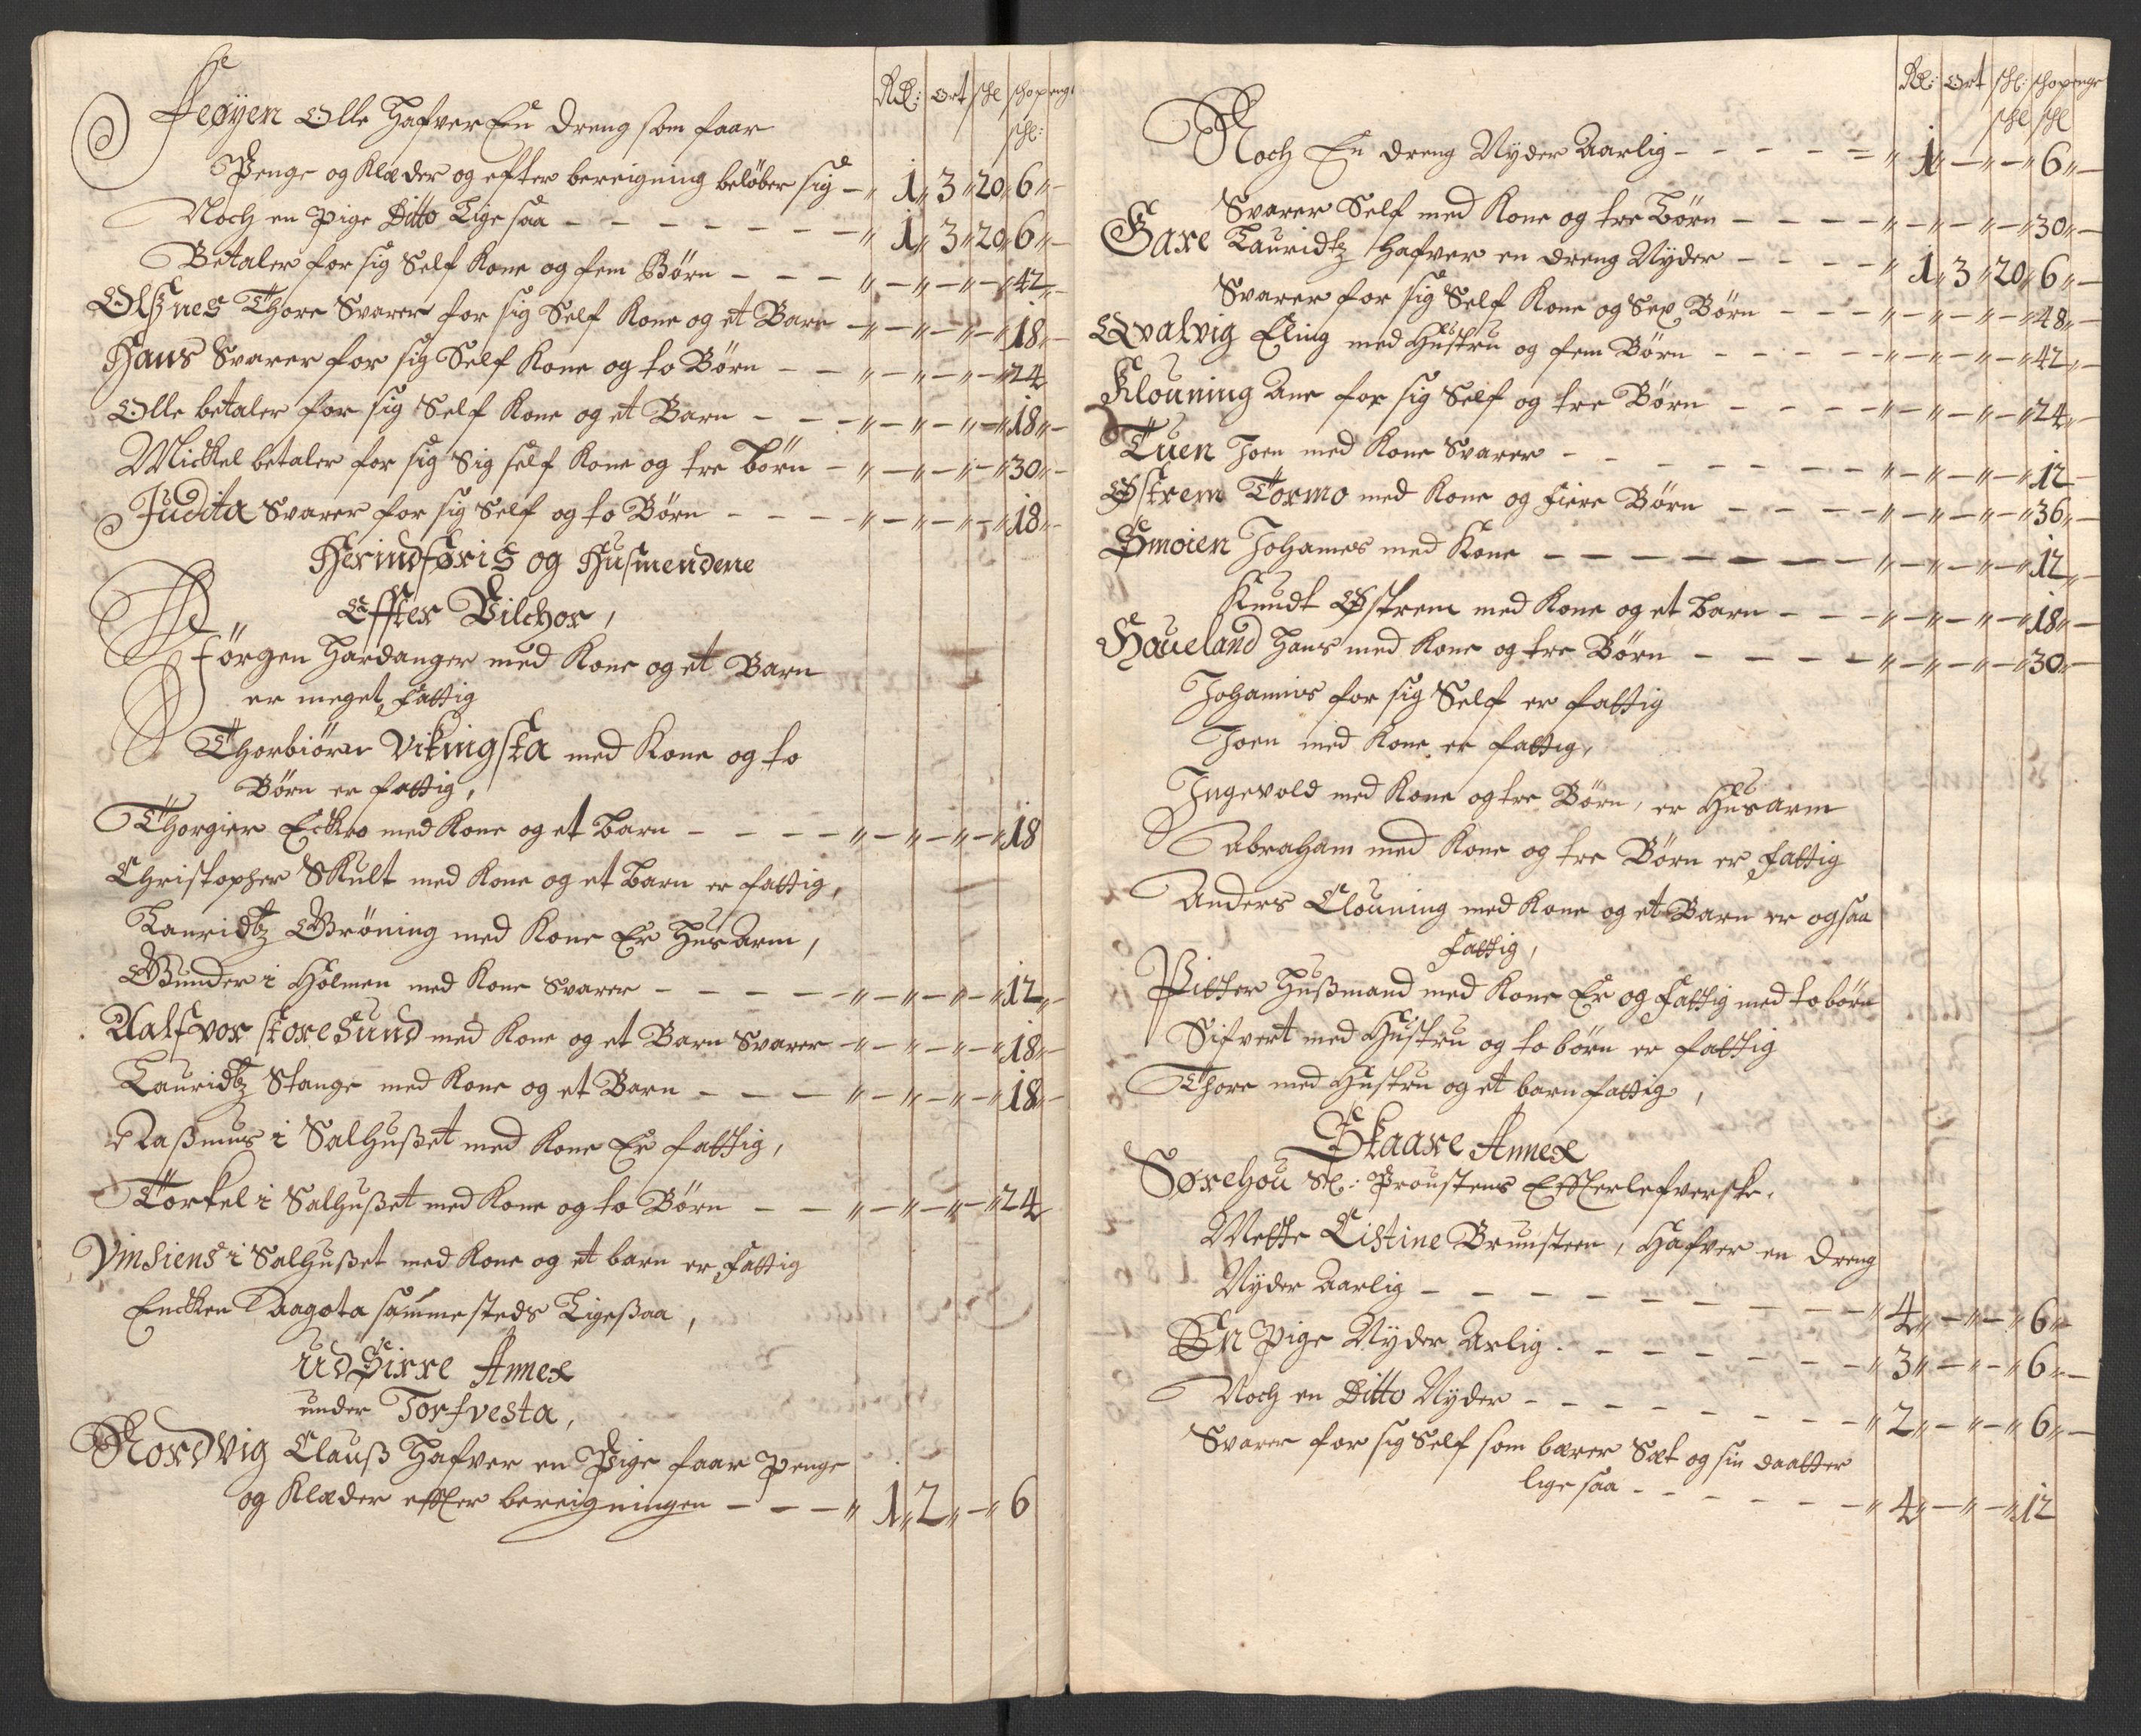 Rd: Ort shl shopenge
shl:
Feøyen Olle Hafver En dreng som faar
Penge og Klæder og efter bereigning beløber sig — " 1 " 3 " 20 " 6 " —
Noch en pige Ditto Lige saa — — — — — — — " 1 " 3 " 20 " 6 " —
Betaler for sig Self Kone og fem Börn — — — " — " — " — " 42 " —
Olsnes Thore Svarer for sig Self Kone og et Barn — " — " — " — " 18 " —
Hans Svarer for sig Self Kone og to Börn — — " — " — " — " 24
Olle betaler for sig Self Kone og et Barn — — — " — " — " — " 18 " —
Mickel betaler for sig Sig self Kone og tre börn — " — " — " — " 30 " —
Judita Svarer for sig Self og to Börn — — — — " — " — " — " 18 " —
Herindføris og Husmendene
Effter Vilchor,
Jörgen Hardanger med Kone og et Barn
er meget fattig
Thorbiörn Vikingsta med Kone og to
Börn er fattig,
Thorgier Eckro med Kone og et barn — — — — " — " — " — " 18
Christopher Skult med Kone og et barn er fattig,
Lauridtz Gröning med Kone Er Husarm,
Gunder i Holmen med Kone Svarer — — — — — " — " — " — " 12 " —
Aalfvor storesund med Kone og et Barn Svarer — " — " — " — " 18 " —
Lauridtz Stange med Kone og et Barn — — — " — " — " — " 18 " —
Rasmus i Salhußet med Kone Er fattig,
Torkel i Salhußet med Kone og to Börn — — " — " — " — " 24
Vinsiens i Salhußet med Kone og et barn er fattig
Enckken Aagota sammesteds Ligeßaa,
Udsirre Annex
under Torfvesta,
Nordvig Clauß Hafver en Pige faar penge
og Klæder effter bereigningen — — — " 1 " 2 " — " 6
Rd: Ort shl: shopenge
shl shl
Noch En dreng Nyder Aarlig — — — — — " 1 " — " — " 6 " —
Svarer Self med Kone og tre börn — — — — " — " — " — " 30 " —
Gare Lauridtz Hafver en dreng Nyder — — — — " 1 " 3 " 20 " 6 " —
Svarer for sig Self Kone og Sex Börn — — — " — " — " — " 48 " —
Qvalvig Eling med Hustru og fem Börn — — — — — " — " — " — " 42 " —
Klouning Ane for sig Self og tre Börn — — — — " — " — " — " 24 " —
Tuen Joen med Kone Svarer — — — — — — — " — " — " — " 12 —
Østrem Tormo med Kone og fiere Börn — — — — " — " — " — " 36 " —
Smoien Johannes med Kone — — — — — — — " — " — " — " 12 " —
Knudt Østrem med Kone og et barn — — — " — " — " — " 18 " —
Haueland Hans med Kone og tre Börn — — — — " — " — " — " 30 " —
Johannis for sig Self er fattig
Joen med Kone er fattig,
Ingevold med Kone og tre Börn, er Husarm
Abraham med Kone og tre Börn er fattig
Anders Clouning med Kone og et Barn er ogsaa
fattig,
Pitter Hußmand med Kone Er og fattig med to börn
Sifvert med Hustru og to börn er fattig
Thore med Hustru og et barn fattig,
Skaare Annex
Sørehou Sl: Proustens Effterlefverske,
Mette Cistine Brunsteen, Hafver en dreng
Nyder Aarlig — — — — — — — — — " 4 " — " — " 6 " —
En pige Nyder Arlig — — — — — — — " 3 " — " — " 6 " —
Noch en Ditto Nyder — — — — — — — — " 2 " — " — " 6 " —
Svarer for sig Self som bærer Sæt og sin daatter
lige saa — — — — — — " 4 " — " — " 12